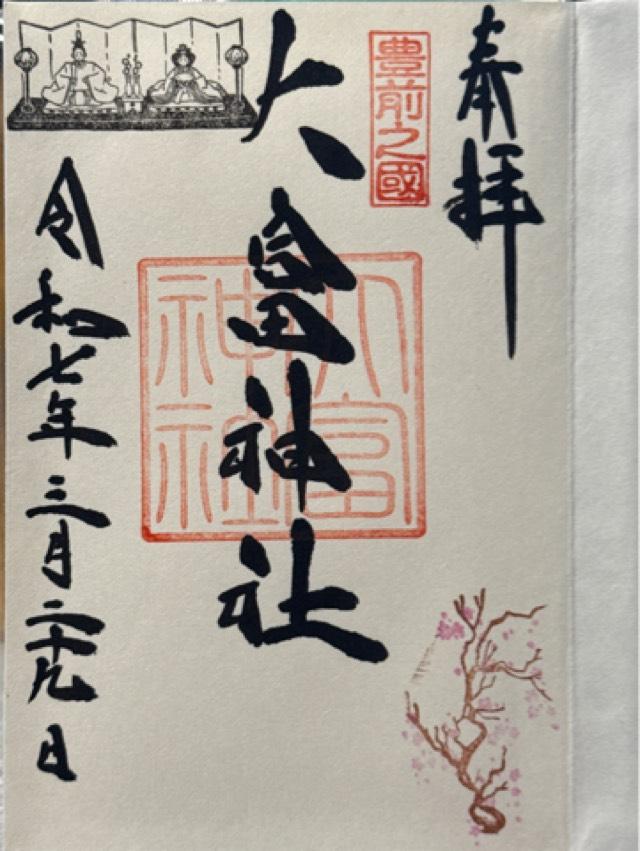 奉拝
豊前之國
大富神社
大富神社
令和七年三月二十九日